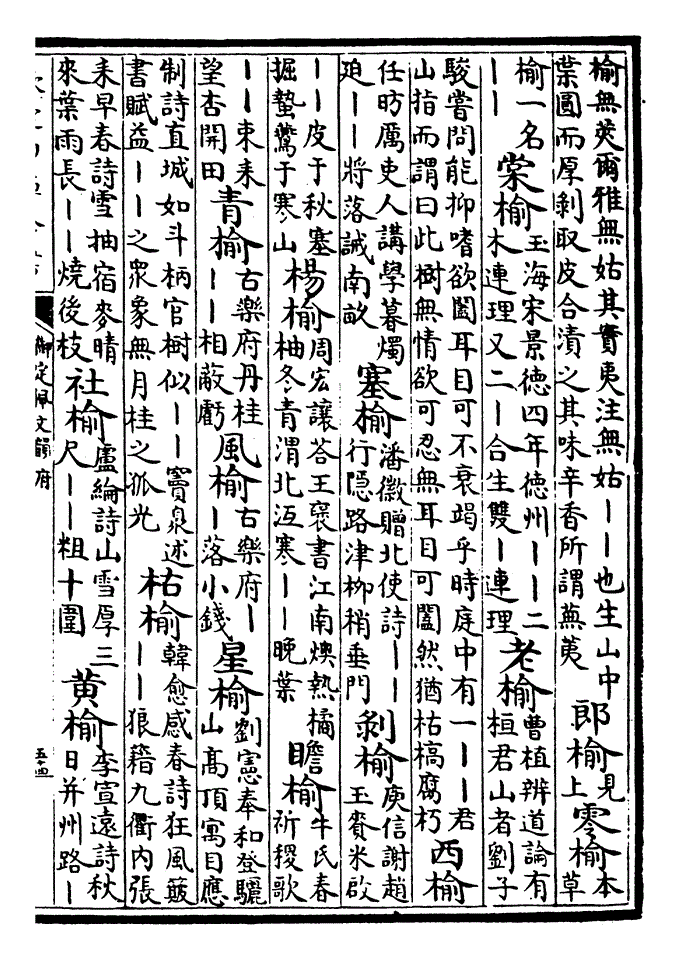 榆無莢爾雅無姑其實夷注無姑丨丨也生山中
葉圓而厚剝取皮合漬之其味辛香所謂蕪荑
郎榆見本
上草
零榆
榆一名
丨丨
棠榆
玉海宋景德四年德州丨丨二
木連理又二丨合生雙丨連理
老榆
曹植辨道論有
桓君山者劉子
駿嘗問能抑嗜欲闔耳目可不衰竭乎時庭中有一丨丨君
山指而謂曰此樹無情欲可忍無耳目可闔然猶枯槁腐朽
西榆
任昉厲吏人講學暮燭
迫丨丨將落誡南畝
塞榆
潘徽贈北使詩丨丨
行隱路津柳稍垂門
剝榆
庾信謝趙
王賚米啟
丨丨皮于秋塞
掘蟄鷰于寒山
楊榆
周宏讓荅王襃書江南燠熱橘
柚冬青渭北沍寒丨丨晚葉
瞻榆
牛氏春
祈稷歌
丨丨束耒
望杏開田
青榆
古樂府丹桂
丨丨相蔽虧
風榆
古樂府丨
丨落小錢
星榆
劉憲奉和登驪
山高頂寓目應
制詩直城如斗柄官樹似丨丨竇泉述
書賦益丨丨之衆象無月桂之孤光
枯榆
韓愈感春詩狂風簸
丨丨狼籍九衢內張
耒早春詩雪抽宿麥晴
來葉雨長丨丨燒後枝
社榆
盧綸詩山雪厚三
尺丨丨粗十圍
黃榆
李宣遠詩秋
日并州路丨
御定佩文韻府
五十四